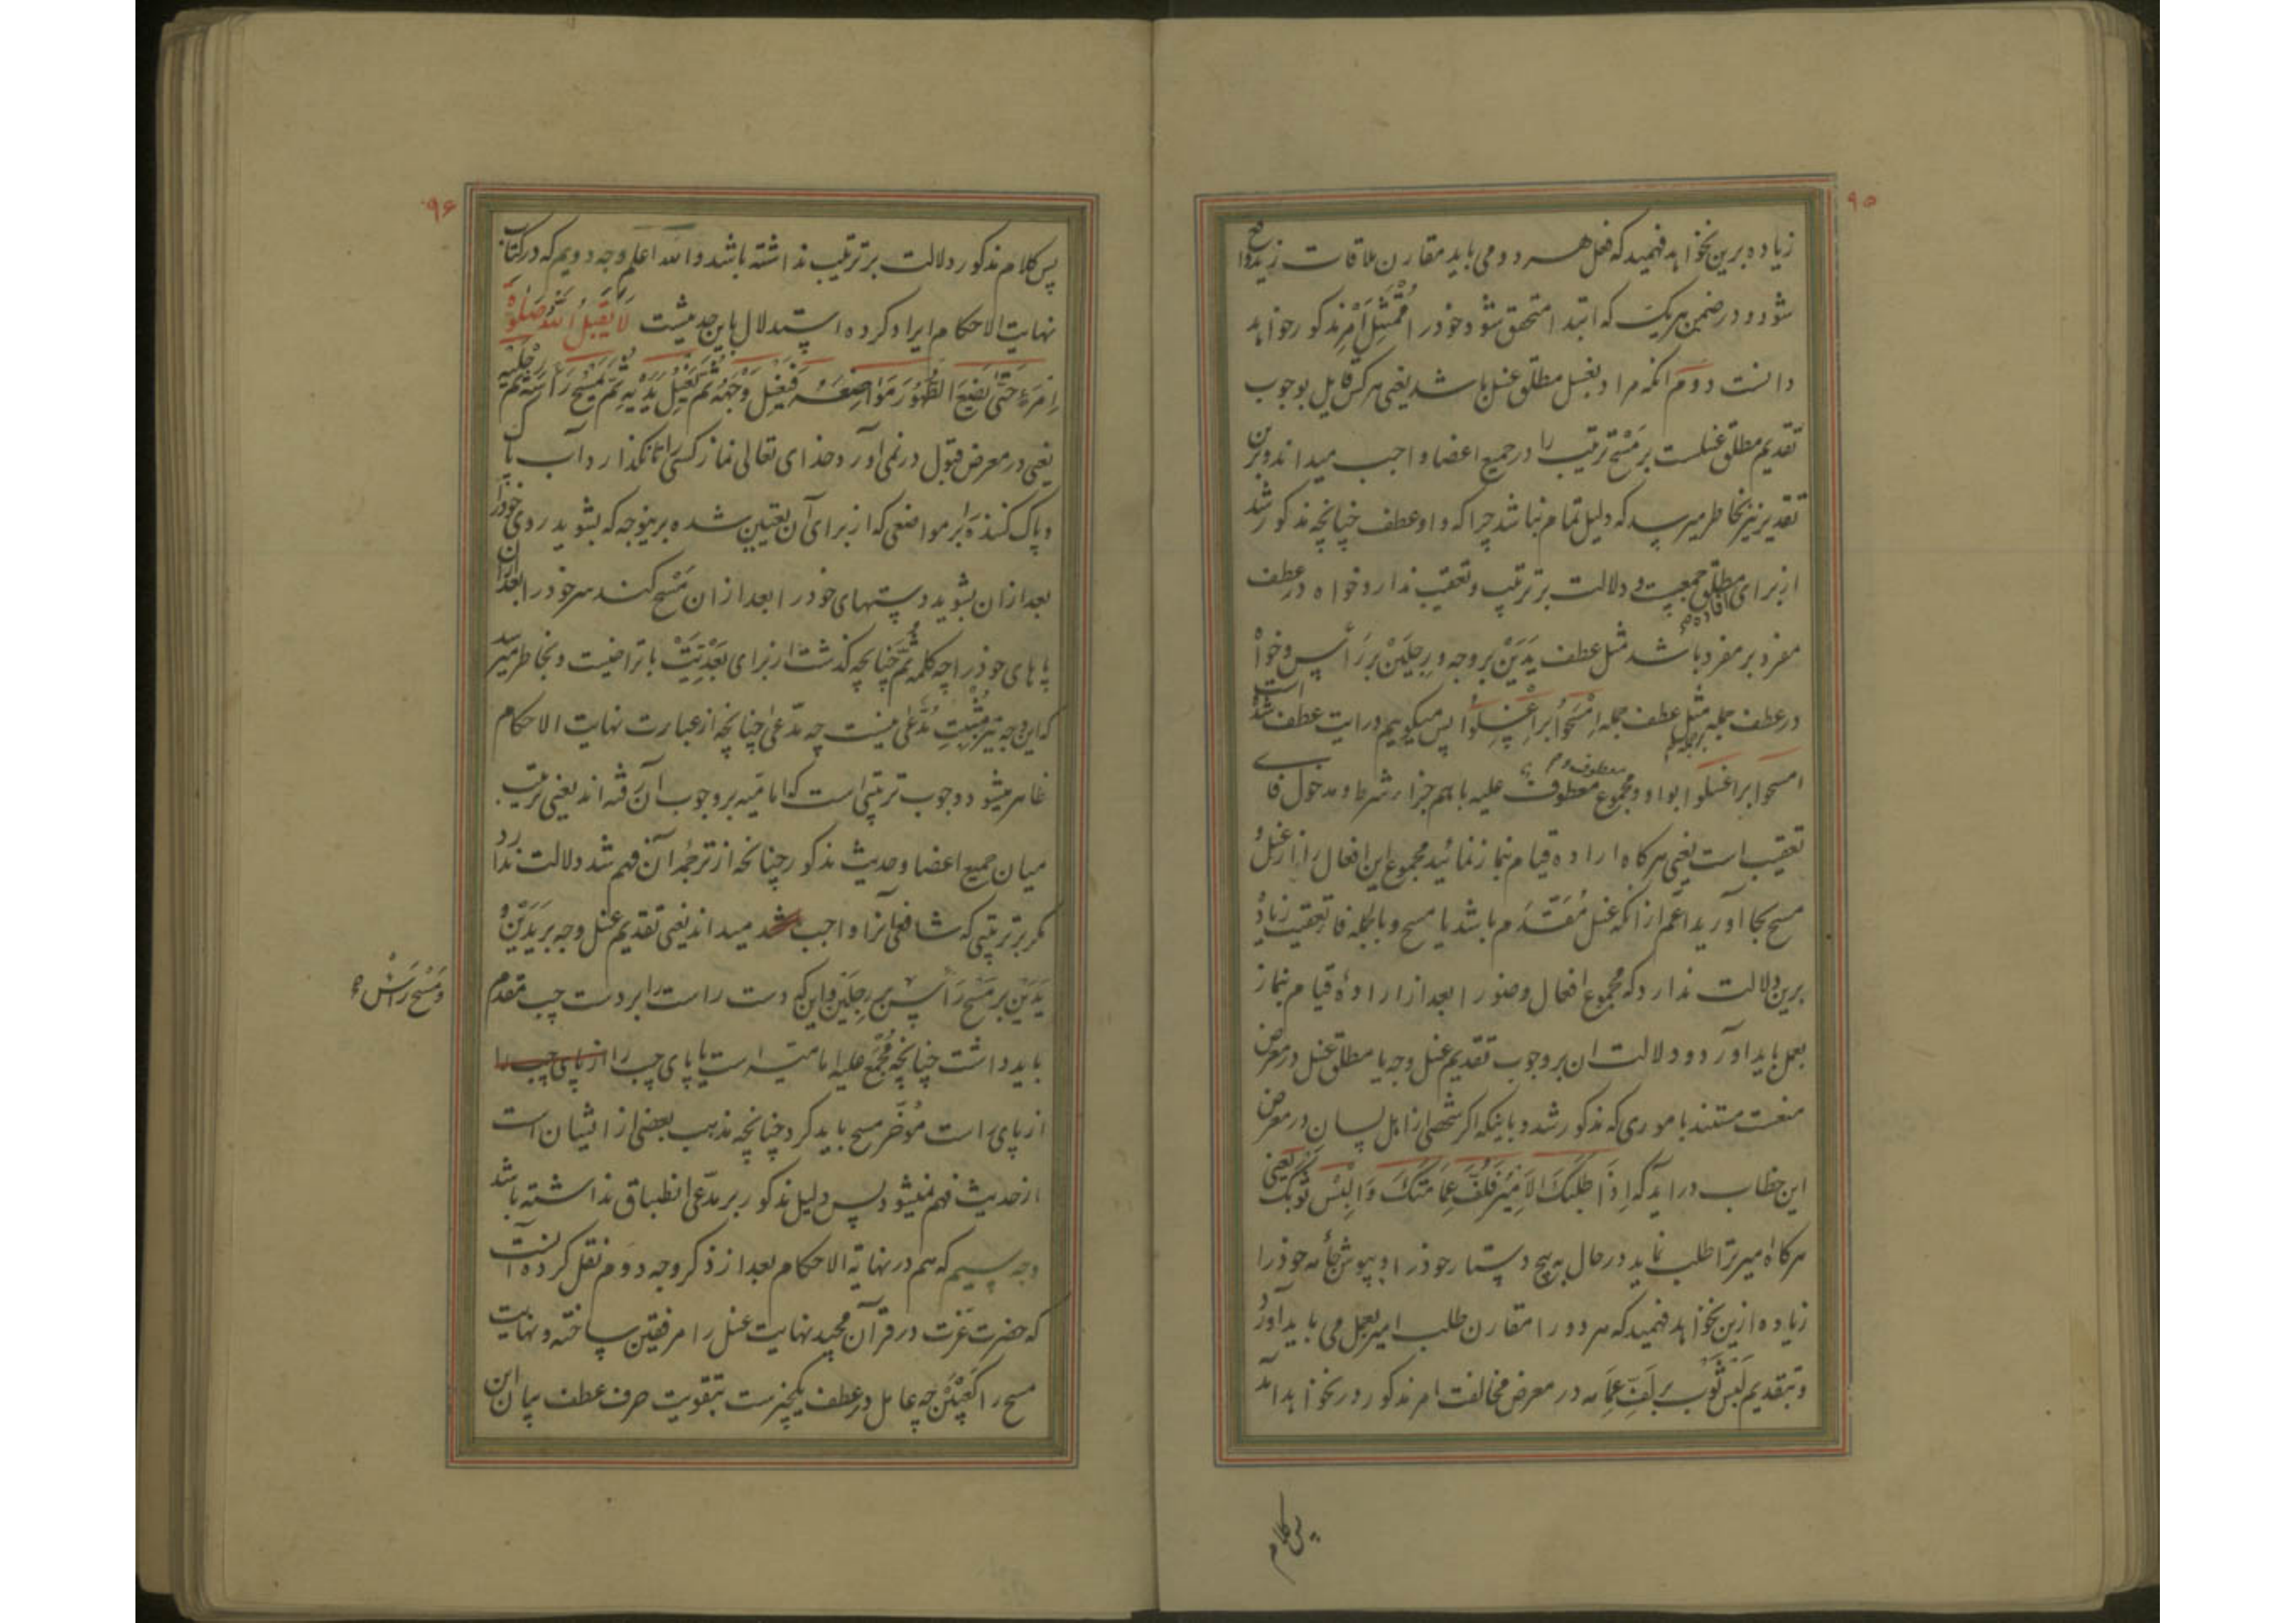 ۹۵
زیاده برین نخواهد فهمید که فعل هر دو می باید مقارن ملاقات زید واقع
شود و در ضمن هریک که ابتدا متحقق شود خود را مُمْتَثِل اَمْرِ مذکور خواهد
دانست دوم آنکه مراد بغسل مطلق غسل باشد یعنی هر کس قایل بوجوب
تقدیم مطلق غسلست بر مَسْح ترتیب را در جمیع اعضا واجب میداند و برین
تقدیر نیز بخاطر میرسد که دلیل تمام نباشد چرا که واو عطف چنانچه مذکور شد
از برای افاده مطلق جمعیت و دلالت بر ترتیب و تعقیب ندارد خواه در عطف
مفرد بر مفرد باشد مثل عطف یَدَیْن بر وجه و رِجلَیْن بر رَأس و خواه
در عطف جمله بر جمله مثل عطف جمله اِمْسَحُوا بر اِغْسِلُوا پس میگوییم در ایت عطف شده است
امسحوا بر اغسلوا بواو و مجموع معطوف و معطوف علیه با هم جزاء شرط و مدخول فای
تعقیب است یعنی هر کاه اراده قیام نماز نمائید مجموع این افعال را از غسل و
مسح بجا آورید اعم از آنکه غسل مُقَدَّم باشد یا مسح و بالجمله فا تعقیب زیاده
برین دلالت ندارد که مجموع افعال وضو را بعد از ارادهٔ قیام نماز
بعمل باید اورد و دلالت ان بر وجوب تقدیم غسل وجه یا مطلق غسل در معرض
منعست مستند باموری که مذکور شد و باینکه اکر شخصی از اهل لسان در معرض
این خطاب دراید که اِذَا طَلَبَكَ الاَمِیْرُ فَلُفَّ عِمَامَتَكَ وَالْبِسْ ثَوْبَكَ یعنی
هر کاه میر ترا طلب نماید در حال به پیچ دستار خود را و بپوش جامه خود را
زیاده ازین نخواهد فهمید که هر دو را مقارن طلب امیر بعمل می باید آورد
و بتقدیم لَبْس ثَوْب بر لَفِّ عِمَامه در معرض مخالفت امر مذکور در نخواهد آمد
پس کلام
۹۶
پس کلام مذکور دلالت بر ترتیب نداشته باشد والله اعلم وجه دویم که در کتاب
نهایت الاحکام ایراد کرده استدلال باین حدیثست لَا یَقْبَلُ اللّٰهُ صَلٰوةَ
اِمْرَءٍ حَتّٰی یَضَعَ الطَّهُورَ مَوَاضِعَهُ فَیَغْسِلَ وَجْهَهُ ثُمَّ یَغْسِلَ یَدَیْهِ ثُمَّ یَمْسَحَ رَأْسَهُ ثُمَّ رِجْلَیْهِ
یعنی در معرض قبول در نمی آورد خدای تعالی نماز کسی را تا نکذارد آب پاک
و پاک کننده را بر مواضعی که از برای آن تعیین شده برینوجه که بشوید روی خود را
بعد ازان بشوید دستهای خود را بعد ازان مَسْح کند سر خود را بعد ازان
پاهای خود را چه کلمه ثُمَّ چنانچه گذشت از برای بَعْدِیَّتْ با تراخیست و بخاطر میرسد
که این وجه نیز مُثْبِتِ مُدَّعٰی نیست چه مدّعی چنانچه از عبارت نهایت الاحکام
ظاهر میشود وجوب ترتیبی است که امامیه بر وجوب آن رفته اند یعنی ترتیب
میان جمیع اعضا و حدیث مذکور چنانچه از ترجمهٔ آن فهم شد دلالت ندارد
مکر بر ترتیبی که شافعی آنرا واجب شد میداند یعنی تقدیم غسل وجه بر یَدَیْن و
یَدَیْن بر مَسْح رَأس بر رِجلَیْن و این که دست راست را بر دست چپ مقدم
وَ مَسْح رَأسْ
باید داشت چنانچه مُجْمَعٌ علیه امامیّه است یا پای چپ را از پای چپ را
از پای راست مُؤخّر مسح باید کرد چنانچه مذهب بعضی از ایشان است
از حدیث فهم نمیشود پس دلیل مذکور بر مدّعی انطباق نداشته باشد
وجه سیم که هم در نهایة الاحکام بعد از ذکر وجه دوم نقل کرده آنست
که حضرت عزت در قرآن مجید نهایت غسل را مرفقین ساخته و نهایت
مسح را کَعْبَیْن چه عامل در عطف یکچیزست بتقویت حرف عطف بیان این